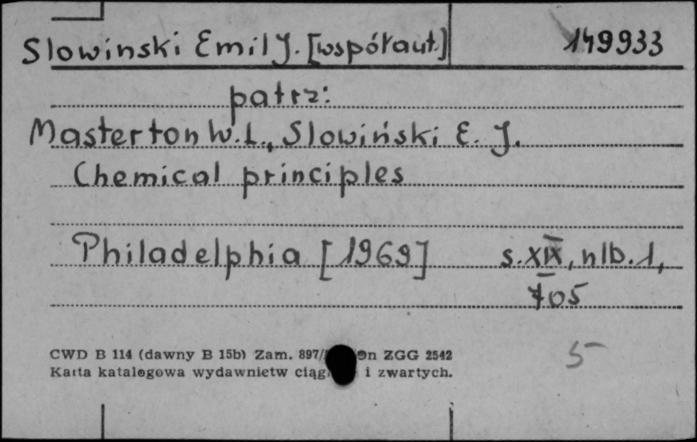 Slowinski Emil J. [współaut.] 149933
patrz:
Masterton W. L., Slowiński E. J.
Chemical principles
Philadelphia [1969] s. XIX, nlb. 1,
705
CWD B 114 (dawny B 15b) Zam. 897/ ZGG 2542
Karta katalogowa wydawnictw i zwartych.
5